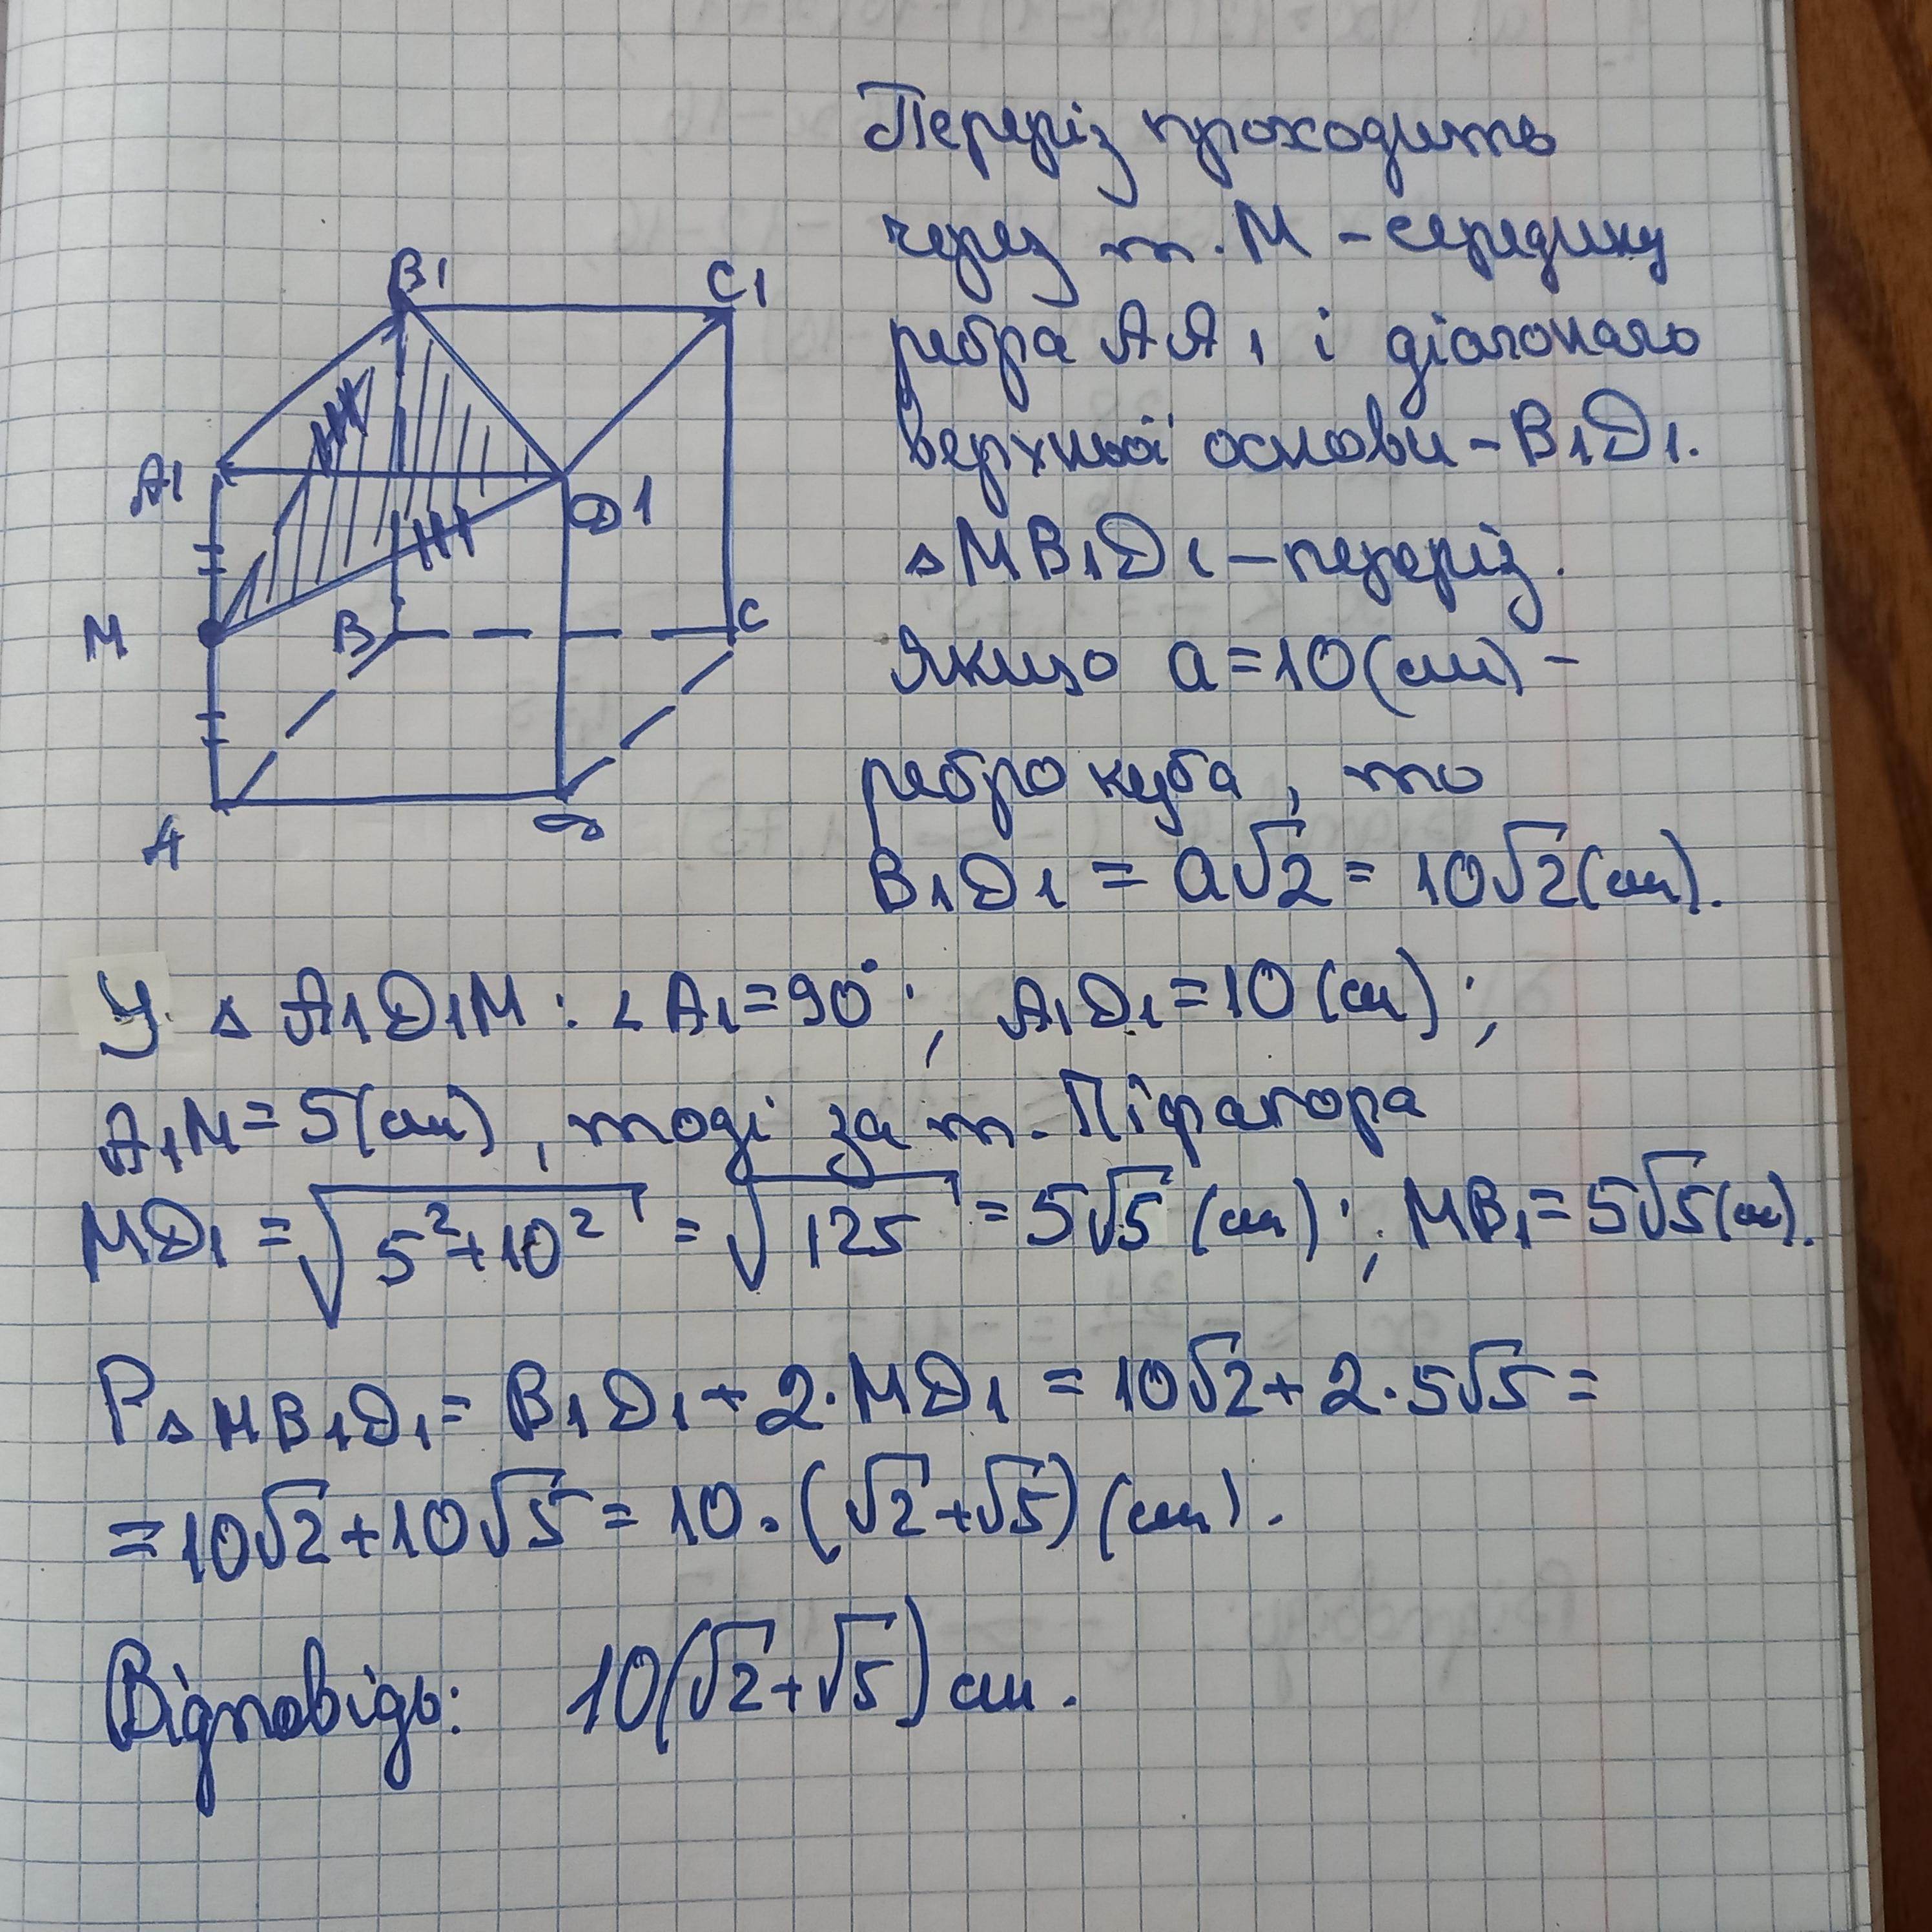 Переріз проходить
через т. М – середину
ребра AA1 і діагональ
верхньої основи – B1D1.
△MB1D1 – переріз.
Якщо a = 10 (см) –
ребро куба, то
B1D1 = a√2 = 10√2 (см).
B1
C1
A1
D1
M
B
C
A
D
У △ A1D1M : ∠A1 = 90°; A1D1 = 10 (см);
A1M = 5 (см), тоді за т. Піфагора
MD1 = √(5² + 10²) = √125 = 5√5 (см); MB1 = 5√5 (см).
P△MB1D1 = B1D1 + 2·MD1 = 10√2 + 2·5√5 =
= 10√2 + 10√5 = 10·(√2 + √5) (см).
Відповідь: 10(√2 + √5) см.